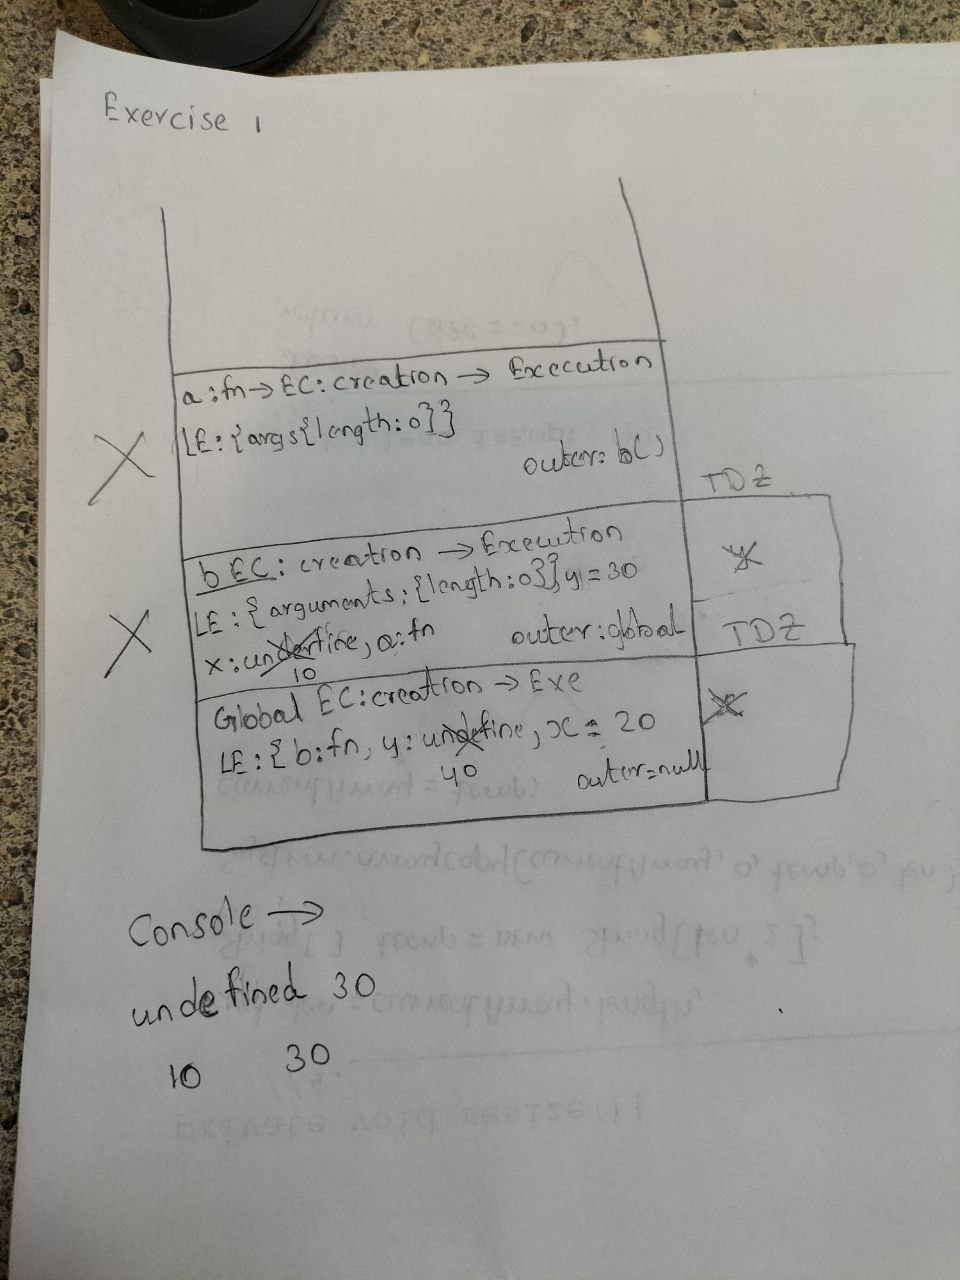 Exercise 1
a:fn→EC:creation → Excecution
LE:{args{length:0}}
outer: b()
TDZ
b EC: creation → Execution
LE:{arguments:{length:0}}y=30
x:undefine, a:fn
10
outer:global
y
TDZ
Global EC:creation → Exe
LE:{b:fn, y:undefine, x=20
40
outer=null
x
Console →
undefined 30
10 30